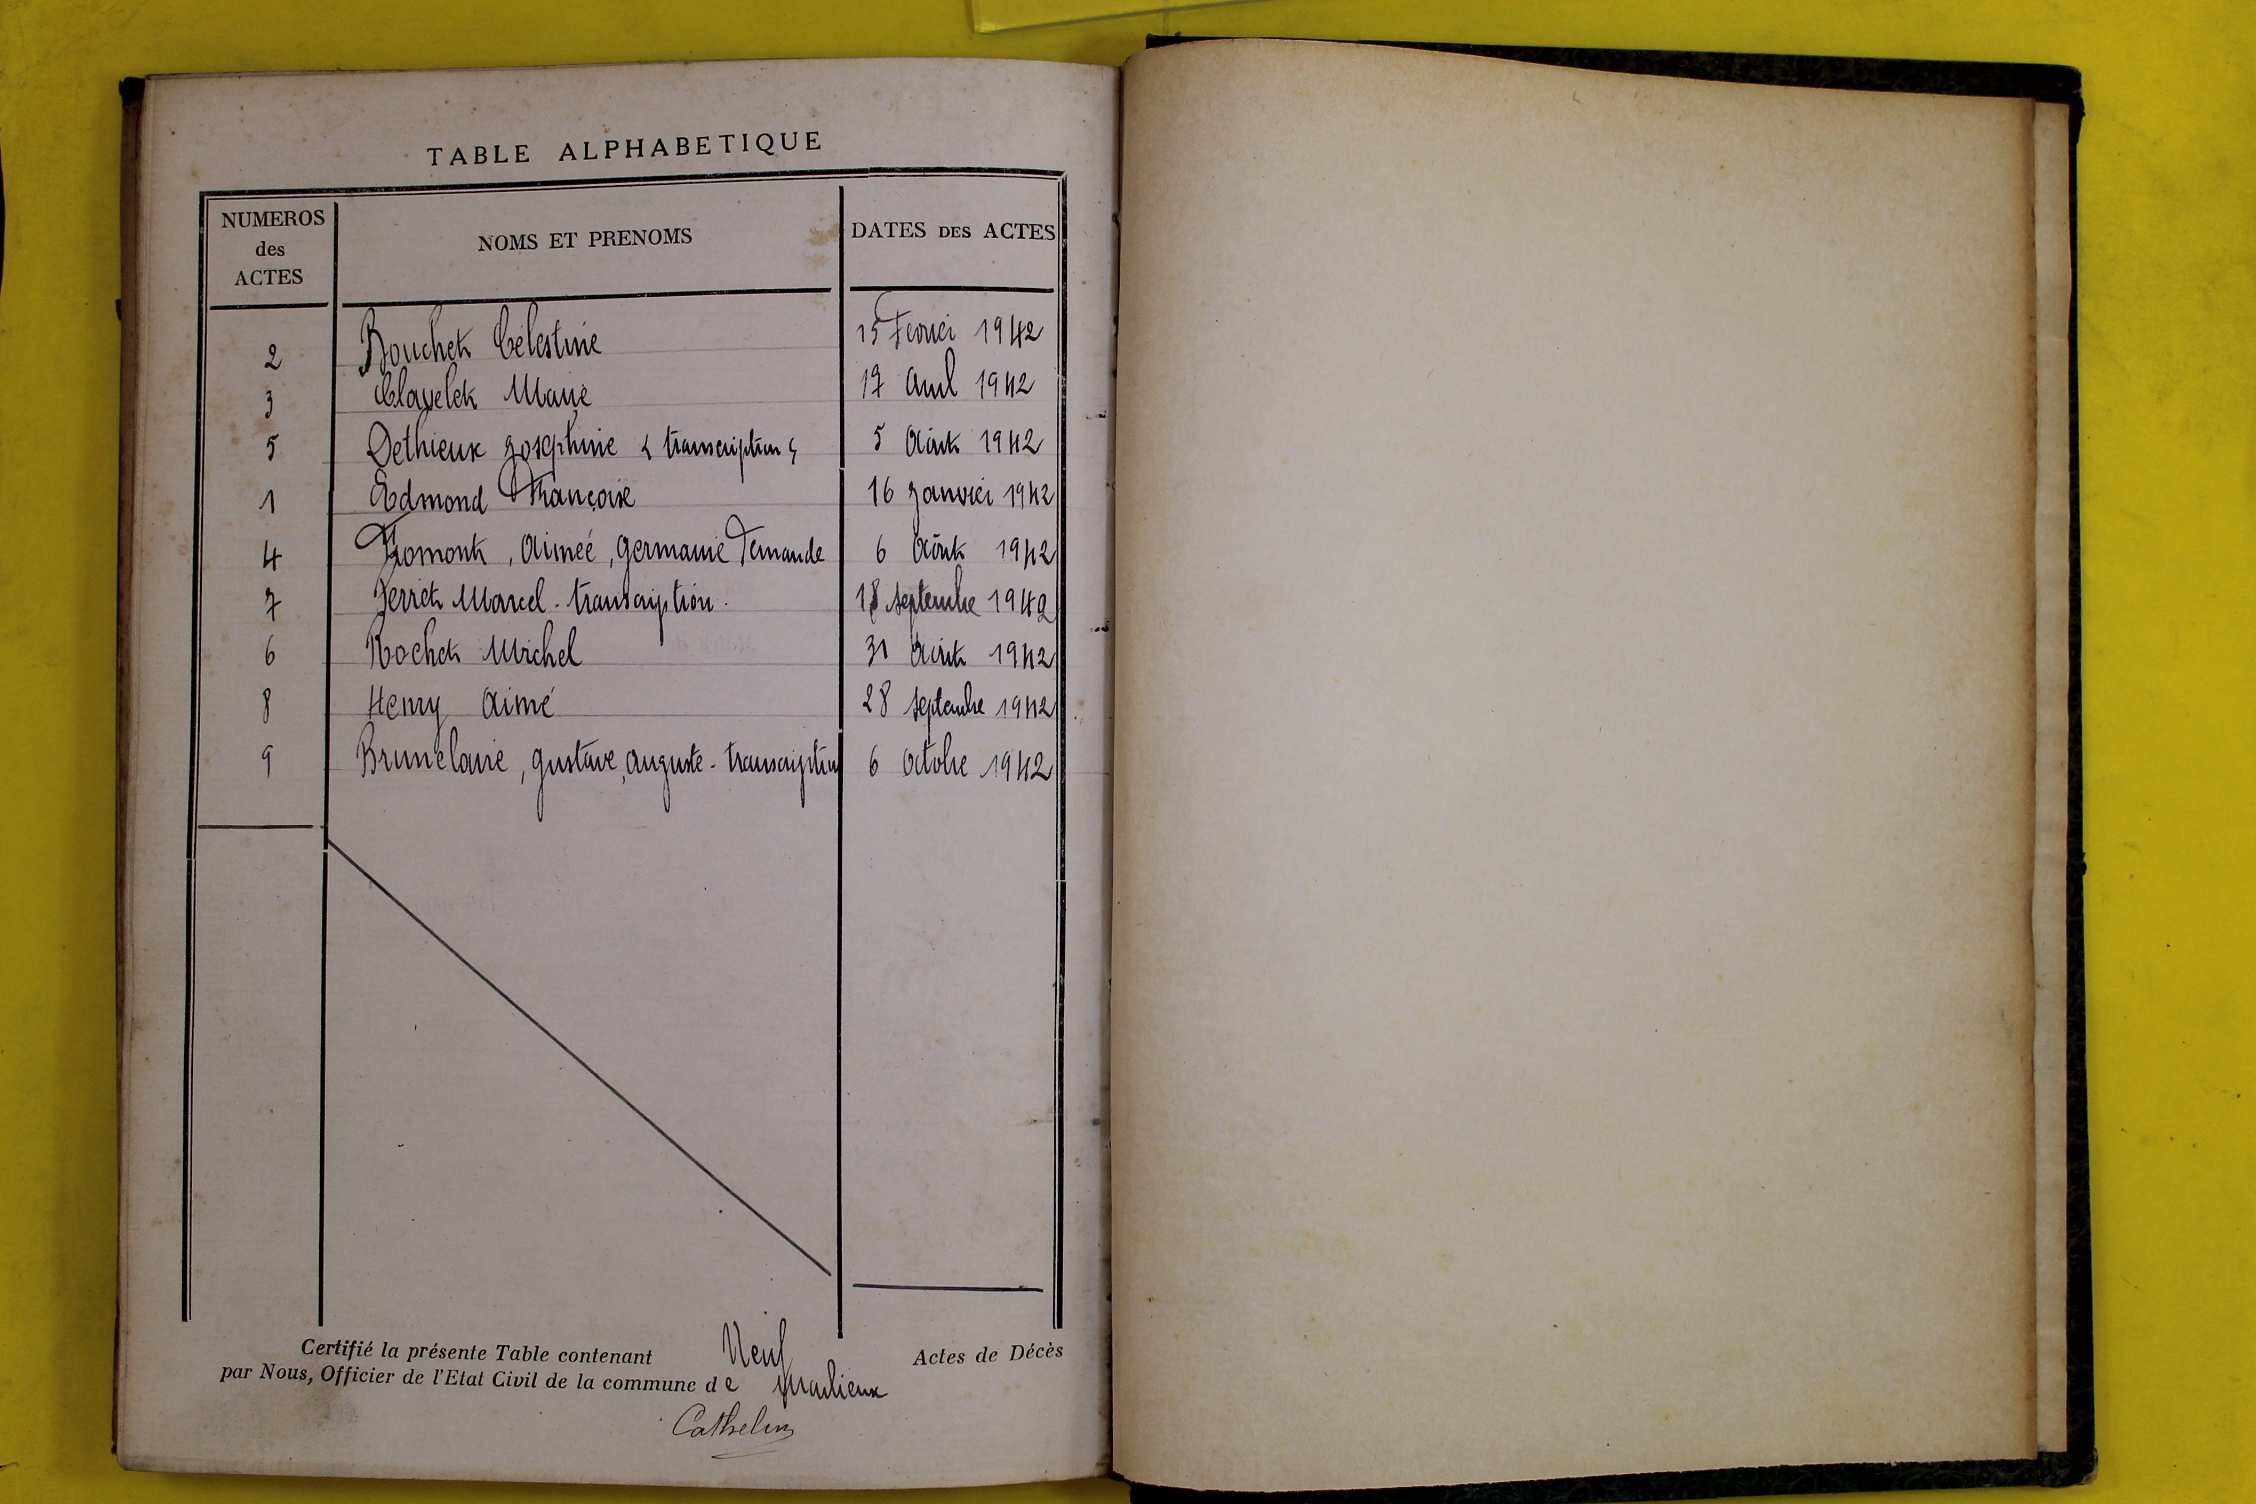 TABLE ALPHABETIQUE
NUMEROS des ACTES NOMS ET PRENOMS DATES DES ACTES
2 Bouchet Célestine 15 Février 1942
3 Clavelet Marie 17 Avril 1942
5 Dethieux Joséphine ( transcription ) 5 Août 1942
1 Edmond Françoise 16 Janvier 1942
4 Fromont, Aimeé, Germaine Fernande 6 Août 1942
7 Perret Marcel - transcription - 18 Septembre 1942
6 Rochet Michel 31 Août 1942
8 Henry Aimé 28 Septembre 1942
9 Brunelaire, Gustave, Auguste - transcription 6 Octobre 1942
Certifié la présente Table contenant Neuf Actes de Décès
par Nous, Officier de l'Etat Civil de la commune de
Cathelin